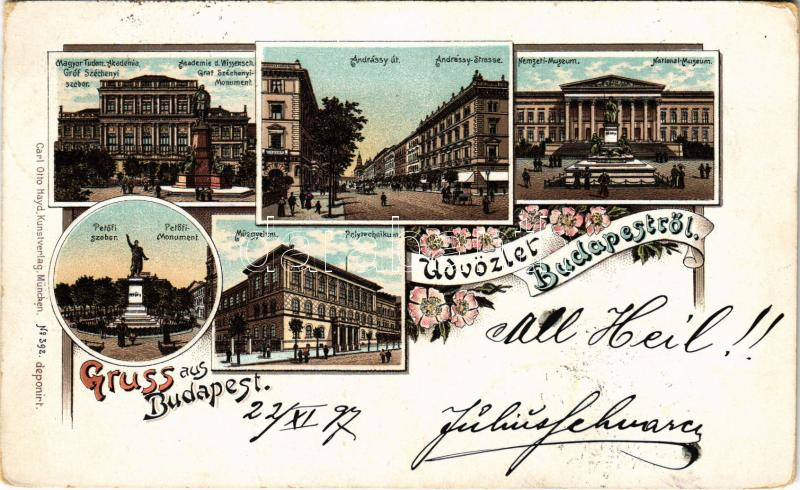 Magyar Tudom. Akadémia.
Gróf Széchenyi
szobor.
Academie d. Wissensch.
Graf Széchenyi-
Monument.
Andrássy út.
Andrássy-Strasse.
Nemzeti-Muzeum.
National-Museum.
Petőfi
szobor.
Petőfi-
Monument.
Műegyetem.
Polytechnikum.
Üdvözlet
Budapestről.
Gruss aus
Budapest.
All Heil!!
22/XI 97
Julius Schwarcz
Carl Otto Hayd, Kunstverlag, München. No 392. deponirt.
darabanth.com